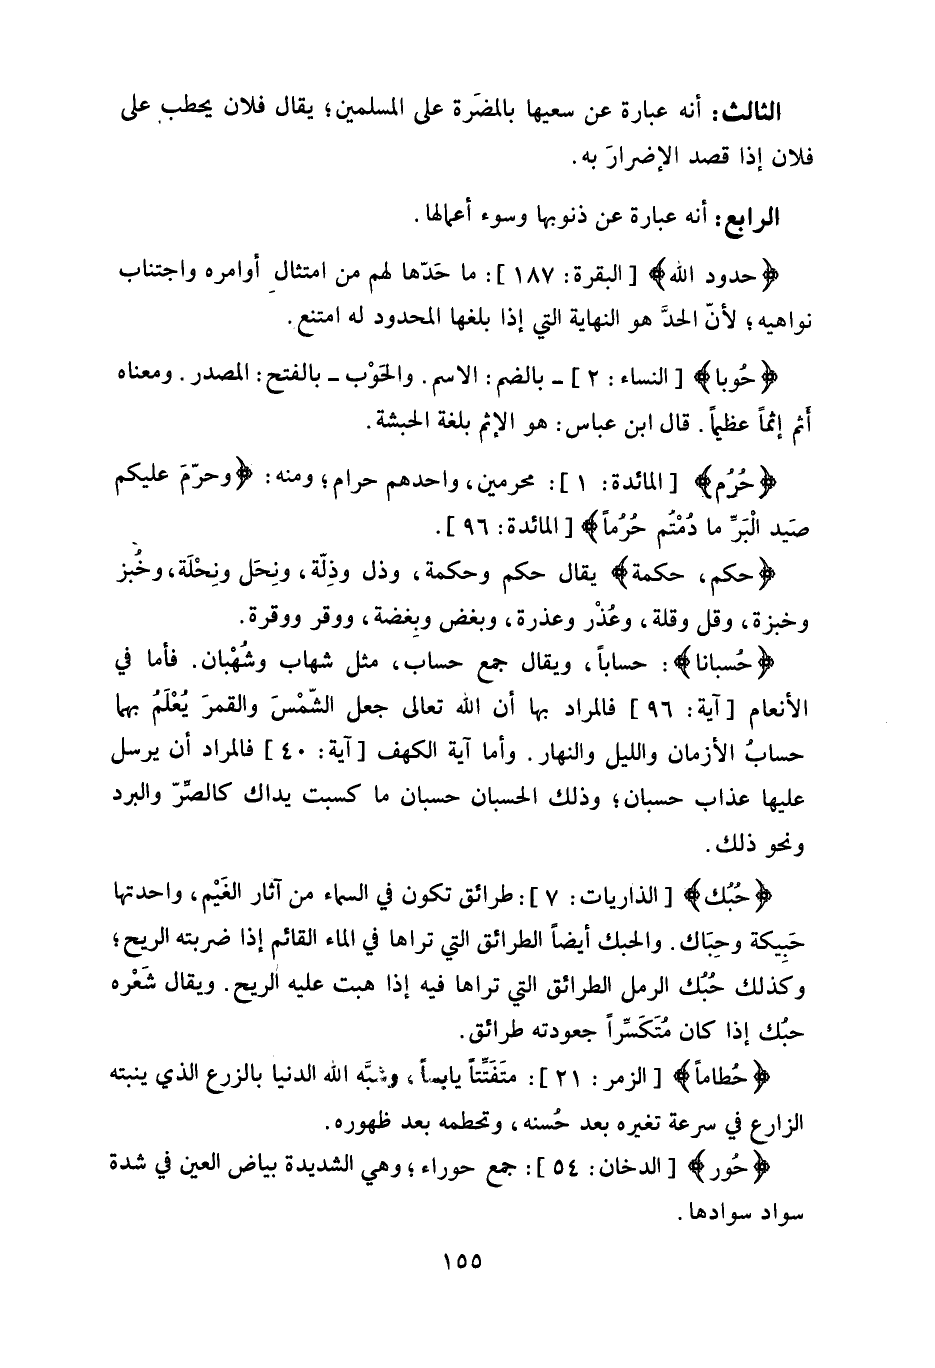 الثالث: أنه عبارة عن سعيها بالمضَرة على المسلمين؛ يقال فلان يحطب على
فلان إذا قصد الإضرارَ به.
الرابع: أنه عبارة عن ذنوبها وسوء أعمالها.
﴿حدود الله﴾ [البقرة: ١٨٧]: ما حَدّها لهم من امتثالِ أوامره واجتناب
نواهيه؛ لأنّ الحدَّ هو النهاية التي إذا بلغها المحدود له امتنع.
﴿حُوبا﴾ [النساء: ٢] ـ بالضم: الاسم. والحَوْب ـ بالفتح: المصدر. ومعناه
أَثم إثماً عظيماً. قال ابن عباس: هو الإثم بلغة الحبشة.
﴿حُرُم﴾ [المائدة: ١]: محرمين، واحدهم حرام؛ ومنه: ﴿وحرّمَ عليكم
صَيد الْبَرِّ ما دُمْتُم حُرُماً﴾ [المائدة: ٩٦].
﴿حكم، حكمة﴾ يقال حكم وحكمة، وذل وذِلّة، ونِحَل ونِحْلَة، وخُبز
وخبزة، وقل وقلة، وعُذْر وعذرة، وبغض وبِغضة، ووقر ووقرة.
﴿حُسبانا﴾: حساباً، ويقال جمع حساب، مثل شهاب وشُهْبان. فأما في
الأنعام [آية: ٩٦] فالمراد بها أن الله تعالى جعل الشّمْسَ والقمرَ يُعْلَمُ بهما
حسابُ الأزمان والليل والنهار. وأما آية الكهف [آية: ٤٠] فالمراد أن يرسل
عليها عذاب حسبان؛ وذلك الحسبان حسبان ما كسبت يداك كالصِّرّ والبرد
ونحو ذلك.
﴿حُبُك﴾ [الذاريات: ٧]: طرائق تكون في السماء من آثار الغَيْم، واحدتها
حَبِيكة وحِبَاك. والحبك أيضاً الطرائق التي تراها في الماء القائم إذا ضربته الريح؛
وكذلك حُبُك الرمل الطرائق التي تراها فيه إذا هبت عليه الريح. ويقال شَعْره
حبُك إذا كان مُتَكَسِّراً جعودته طرائق.
﴿حُطاماً﴾ [الزمر: ٢١]: متَفَتِّتاً يابساً، وشبَّه الله الدنيا بالزرع الذي ينبته
الزارع في سرعة تغيره بعد حُسنه، وتحطمه بعد ظهوره.
﴿حُور﴾ [الدخان: ٥٤]: جمع حوراء؛ وهي الشديدة بياض العين في شدة
سواد سوادها.
١٥٥